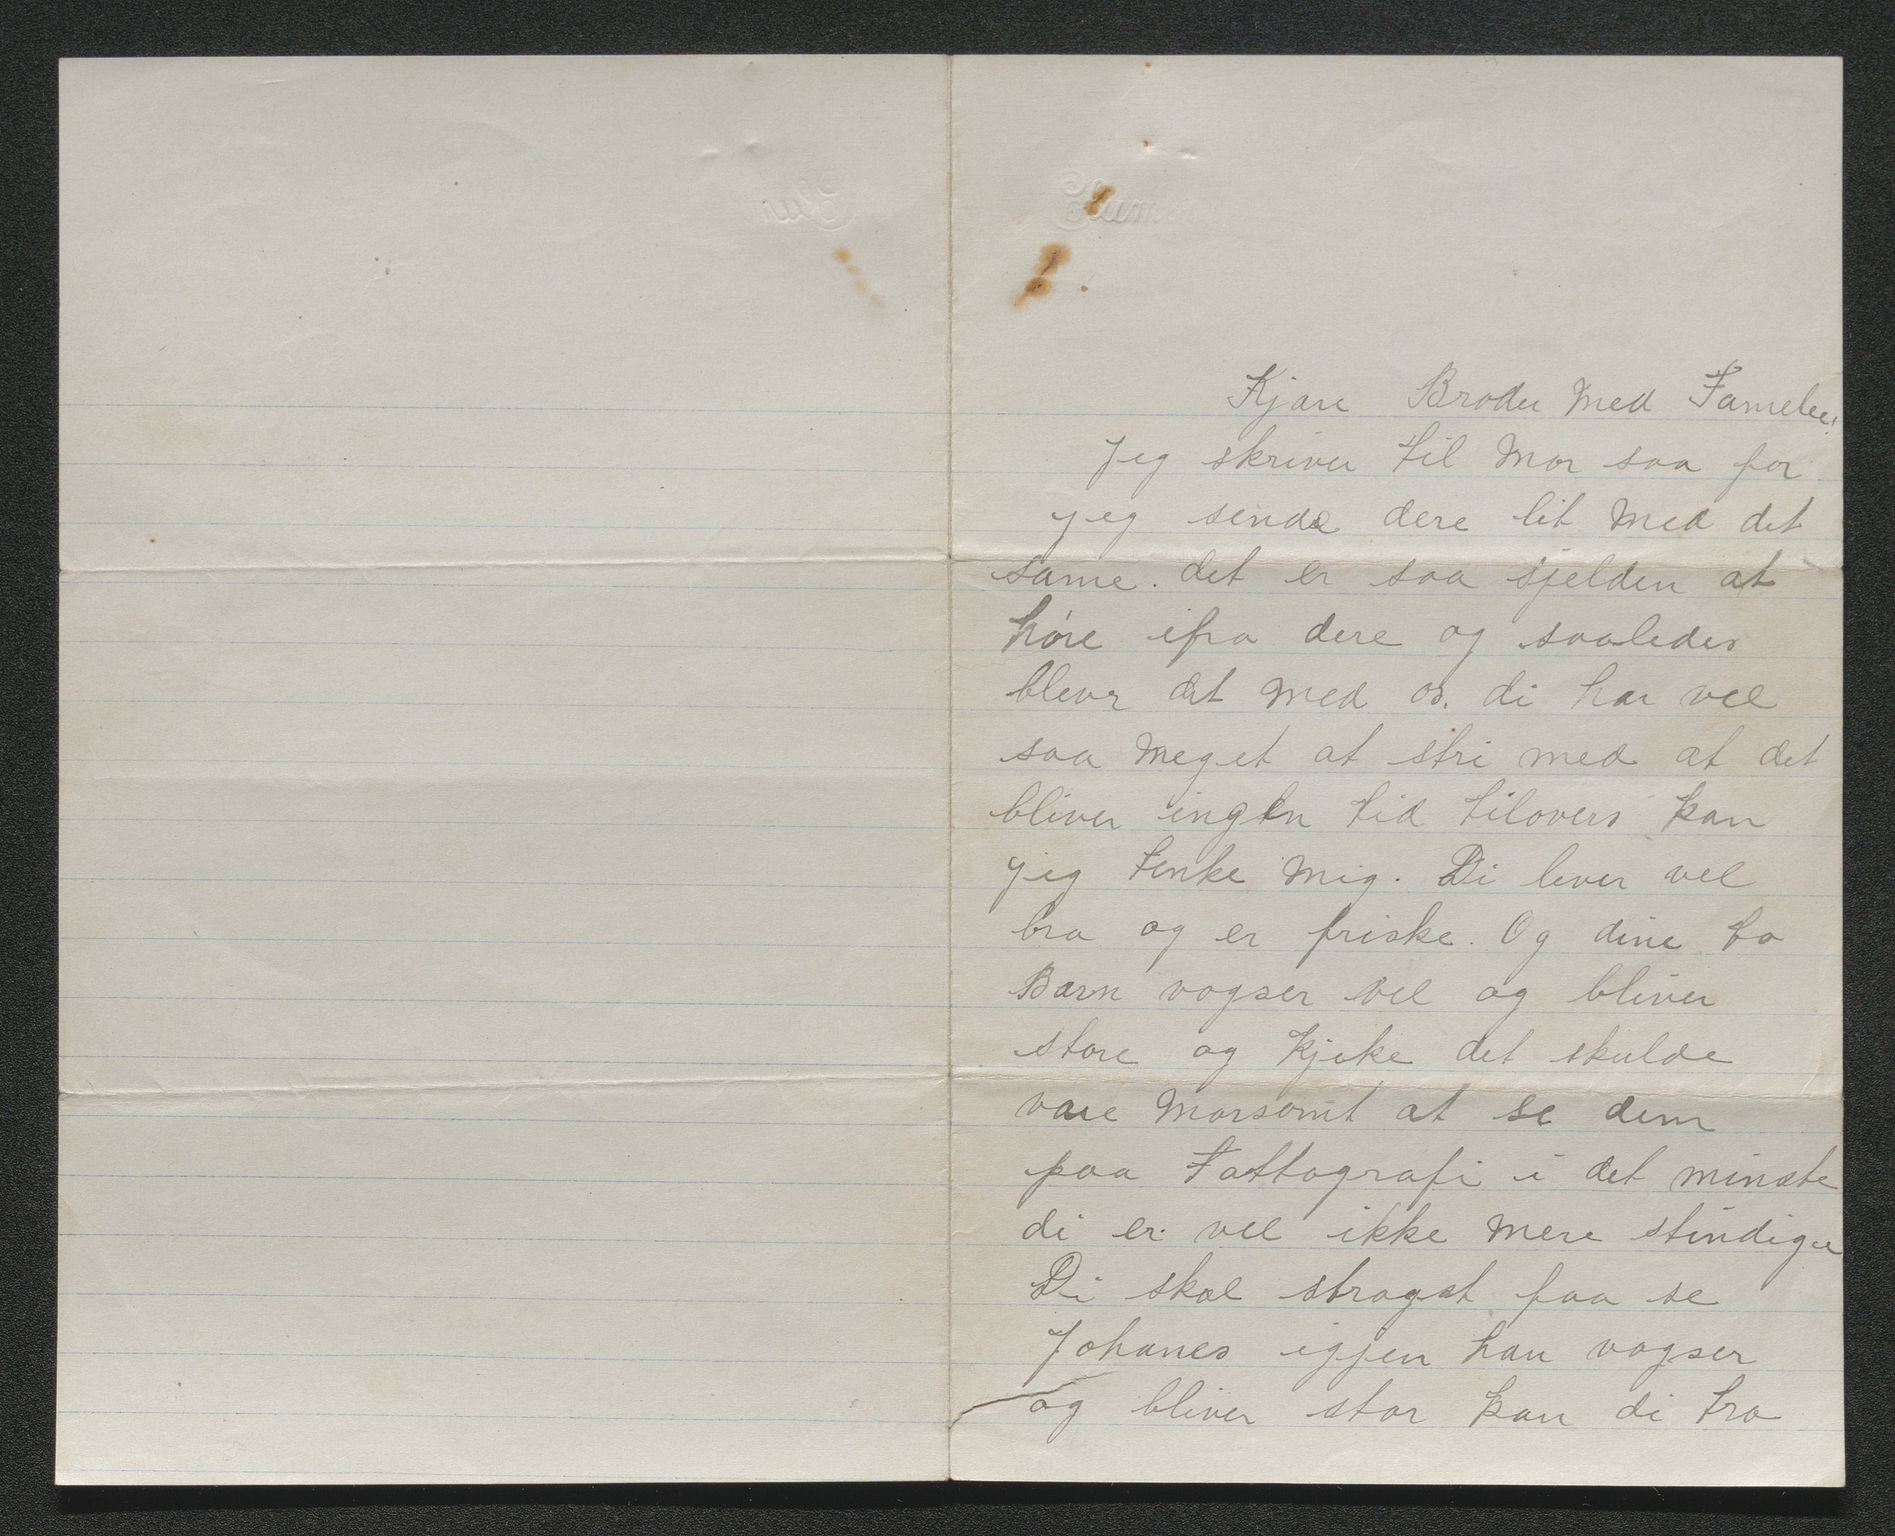 Kjare Broder Med Famelie!
Jeg skriver til Mor saa for
jeg sende dere lit Med det
same. det er saa sjelden at
høre ifra dere og saaledes
blevr det Med os. di har vel
saa Meget at stri med at det
bliver ingen tid tilovers kan
jeg tenke Mig. Di lever vel
bra og er friske. Og dine to
Barn vogser vel og bliver
store og kjeke det skulde
vare Morsomt at se dem
paa Fottografi i det minste
di er vel ikke Mere stindiger
Di skal stragst faa se
Johanes igjen han vogser
og bliver stor kan di tro